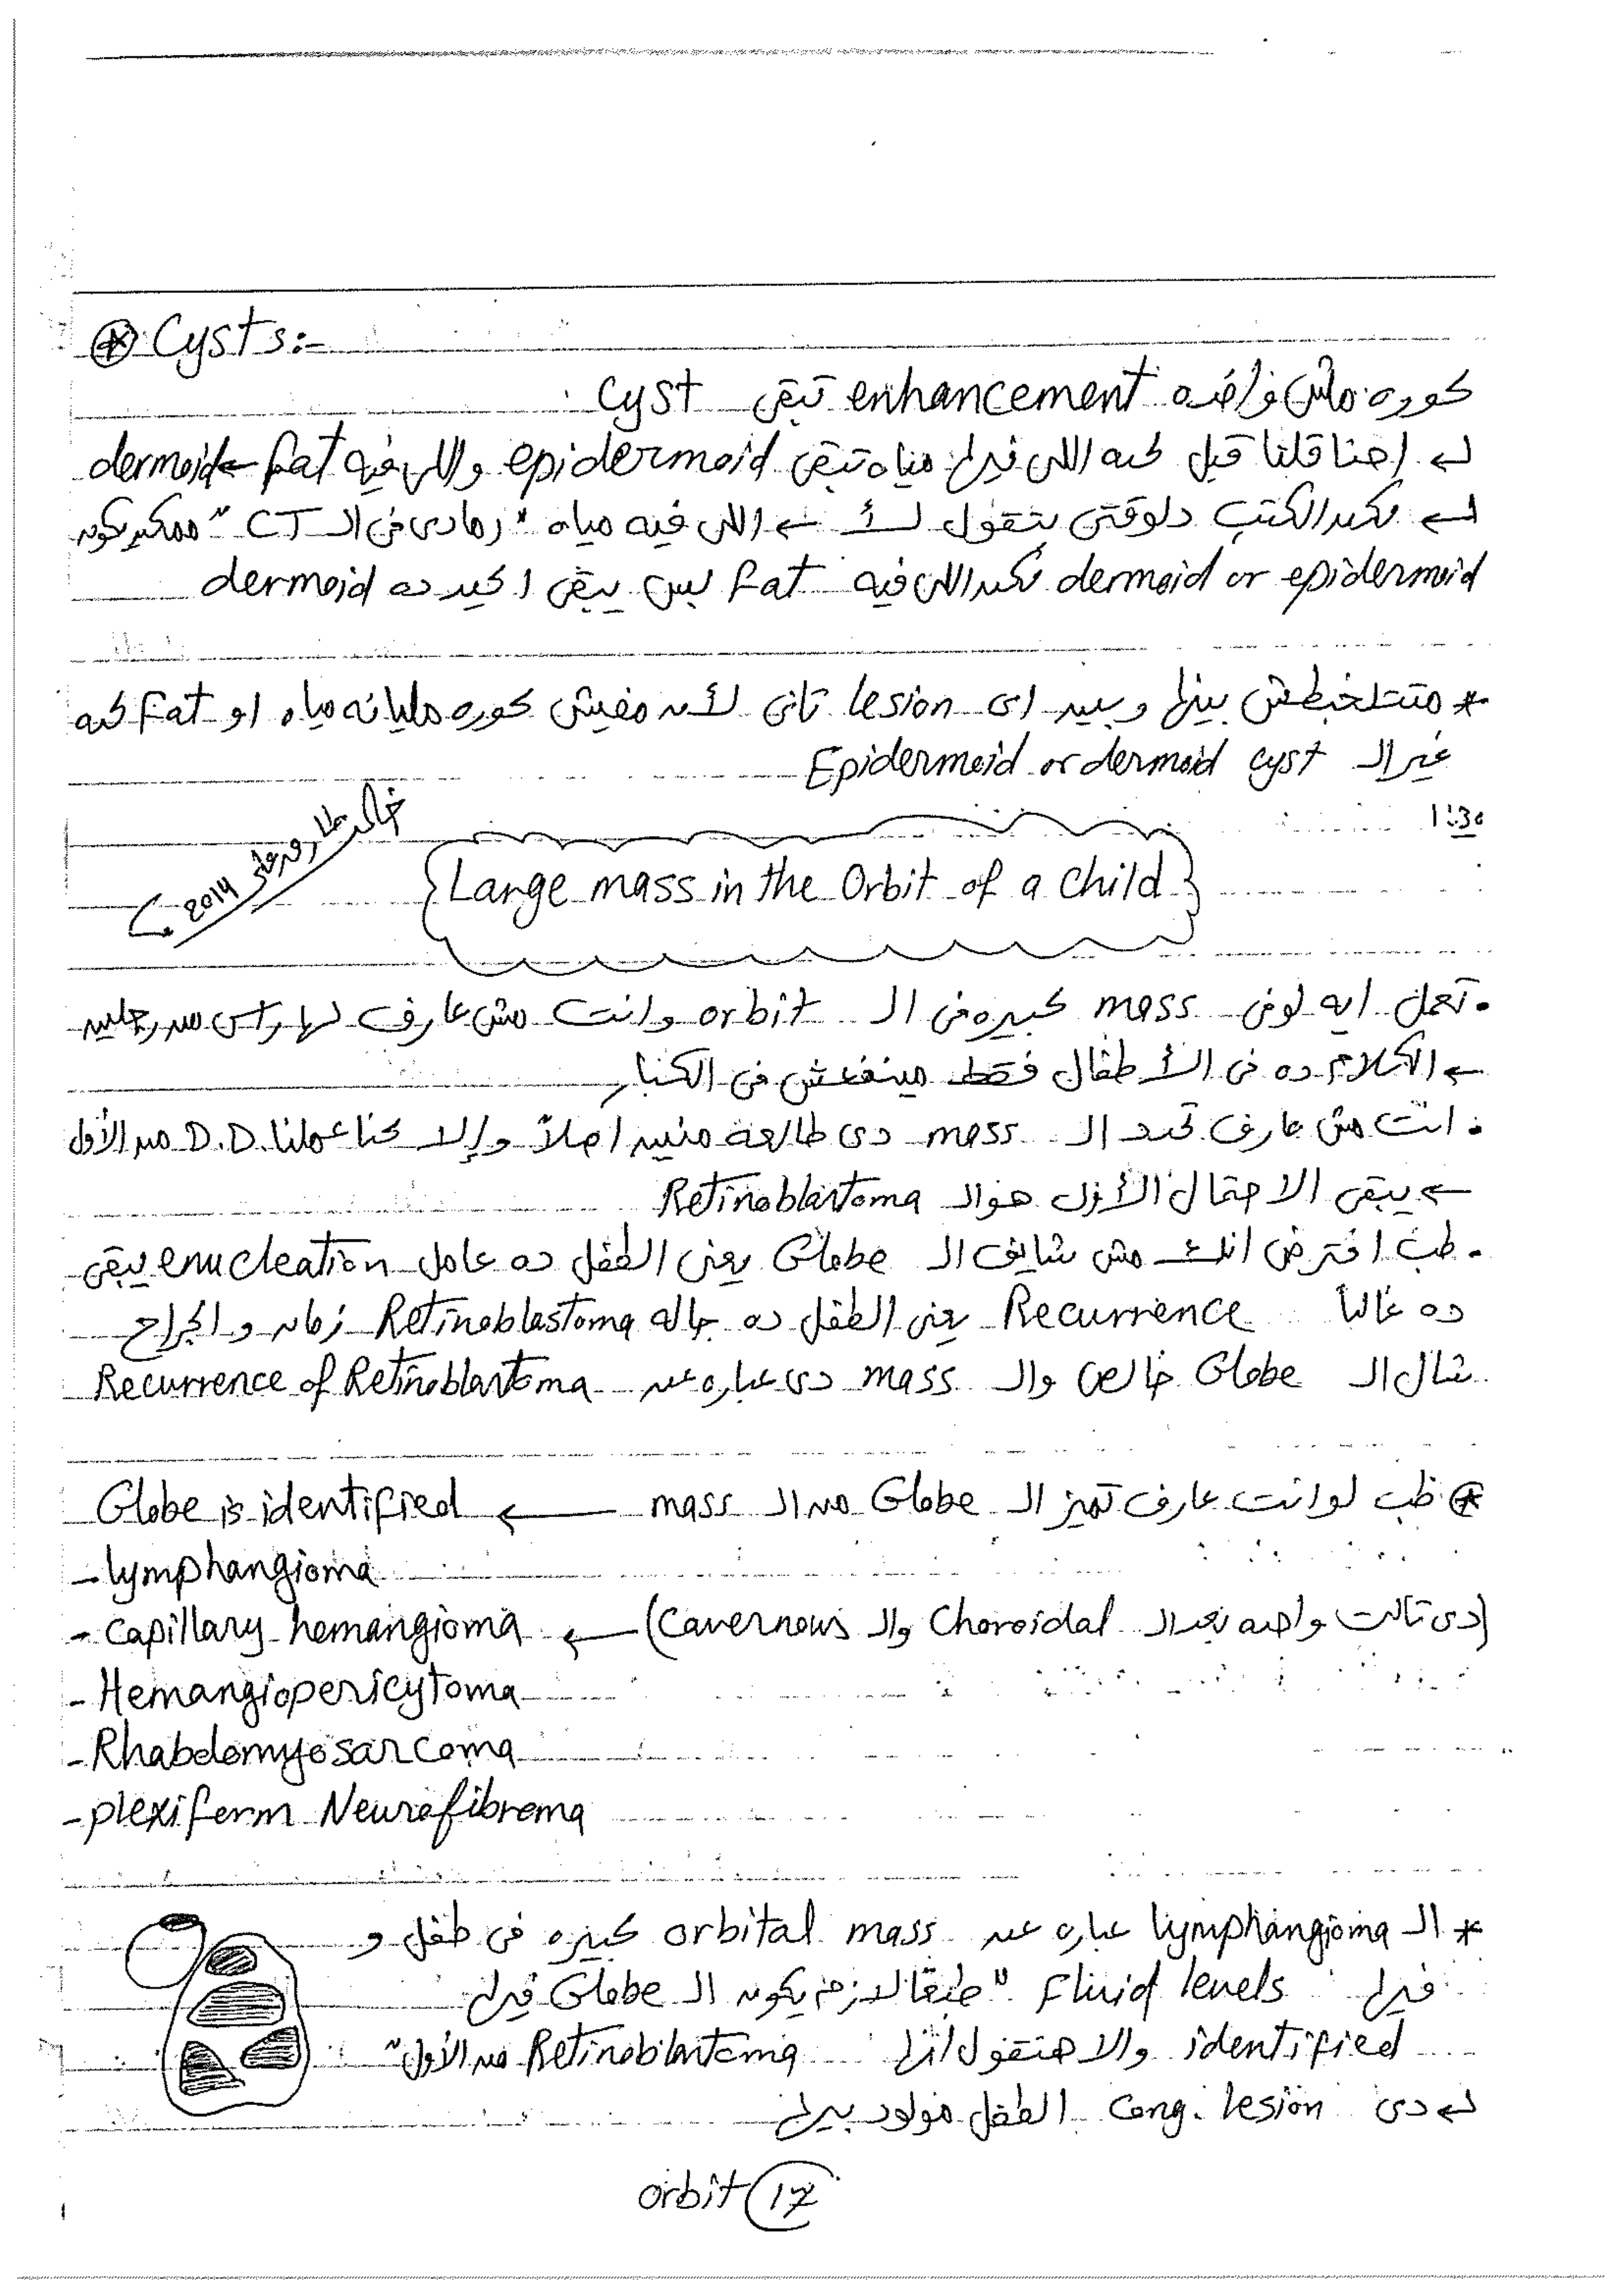 ⊛ Cysts:-
كوره مش واخده enhancement تبقى cyst
↳ احنا قلنا قبل كده اللى فيها مياه تبقى epidermoid واللى فيه fat ← dermoid
↳ لكن الكتب دلوقتى بتقول لك ← اللى فيه مياه "رمادى فى الـ CT" ممكن يكون
dermoid or epidermoid لكن اللى فيه fat بس يبقى اكيد ده dermoid
* متتلخبطش بينها وبين اى lesion تانى لأن مفيش كوره مليانه مياه او fat كده
غير الـ Epidermoid or dermoid cyst
1:30
خالد طاروفروفى 2014
Large mass in the Orbit of a child
• تعمل ايه لو فى mass كبيره فى الـ orbit وانت مش عارف لها راس من رجلين
← الكلام ده فى الأطفال فقط مينفعش فى الكبار
• انت مش عارف تحدد الـ mass دى طالعه منين اصلاً وإلا كنا عملنا D.D. من الأول
← يبقى الاحتمال الأول هو الـ Retinoblastoma
• طب افترض انك مش شايف الـ Globe يعنى الطفل ده عامل enucleation يبقى
ده غالباً Recurrence يعنى الطفل ده جاله Retinoblastoma زمان و الجراح
شال الـ Globe خالص والـ mass دى عباره عن Recurrence of Retinoblastoma
⊛ طب لو انت عارف تميز الـ Globe من الـ mass ← Globe is identified
- lymphangioma
- capillary hemangioma ← (دى تالت واحده بعد الـ Choroidal والـ Cavernous)
- Hemangiopericytoma
- Rhabdomyosarcoma
- plexiform Neurofibroma
* الـ lymphangioma عباره عن orbital mass كبيره فى طفل و
فيها Fluid levels "طبعا لازم يكون الـ Globe فيها
identified والا هنقول انها Retinoblastoma من الأول"
↳ دى cong. lesion الطفل مولود بيها
orbit 17